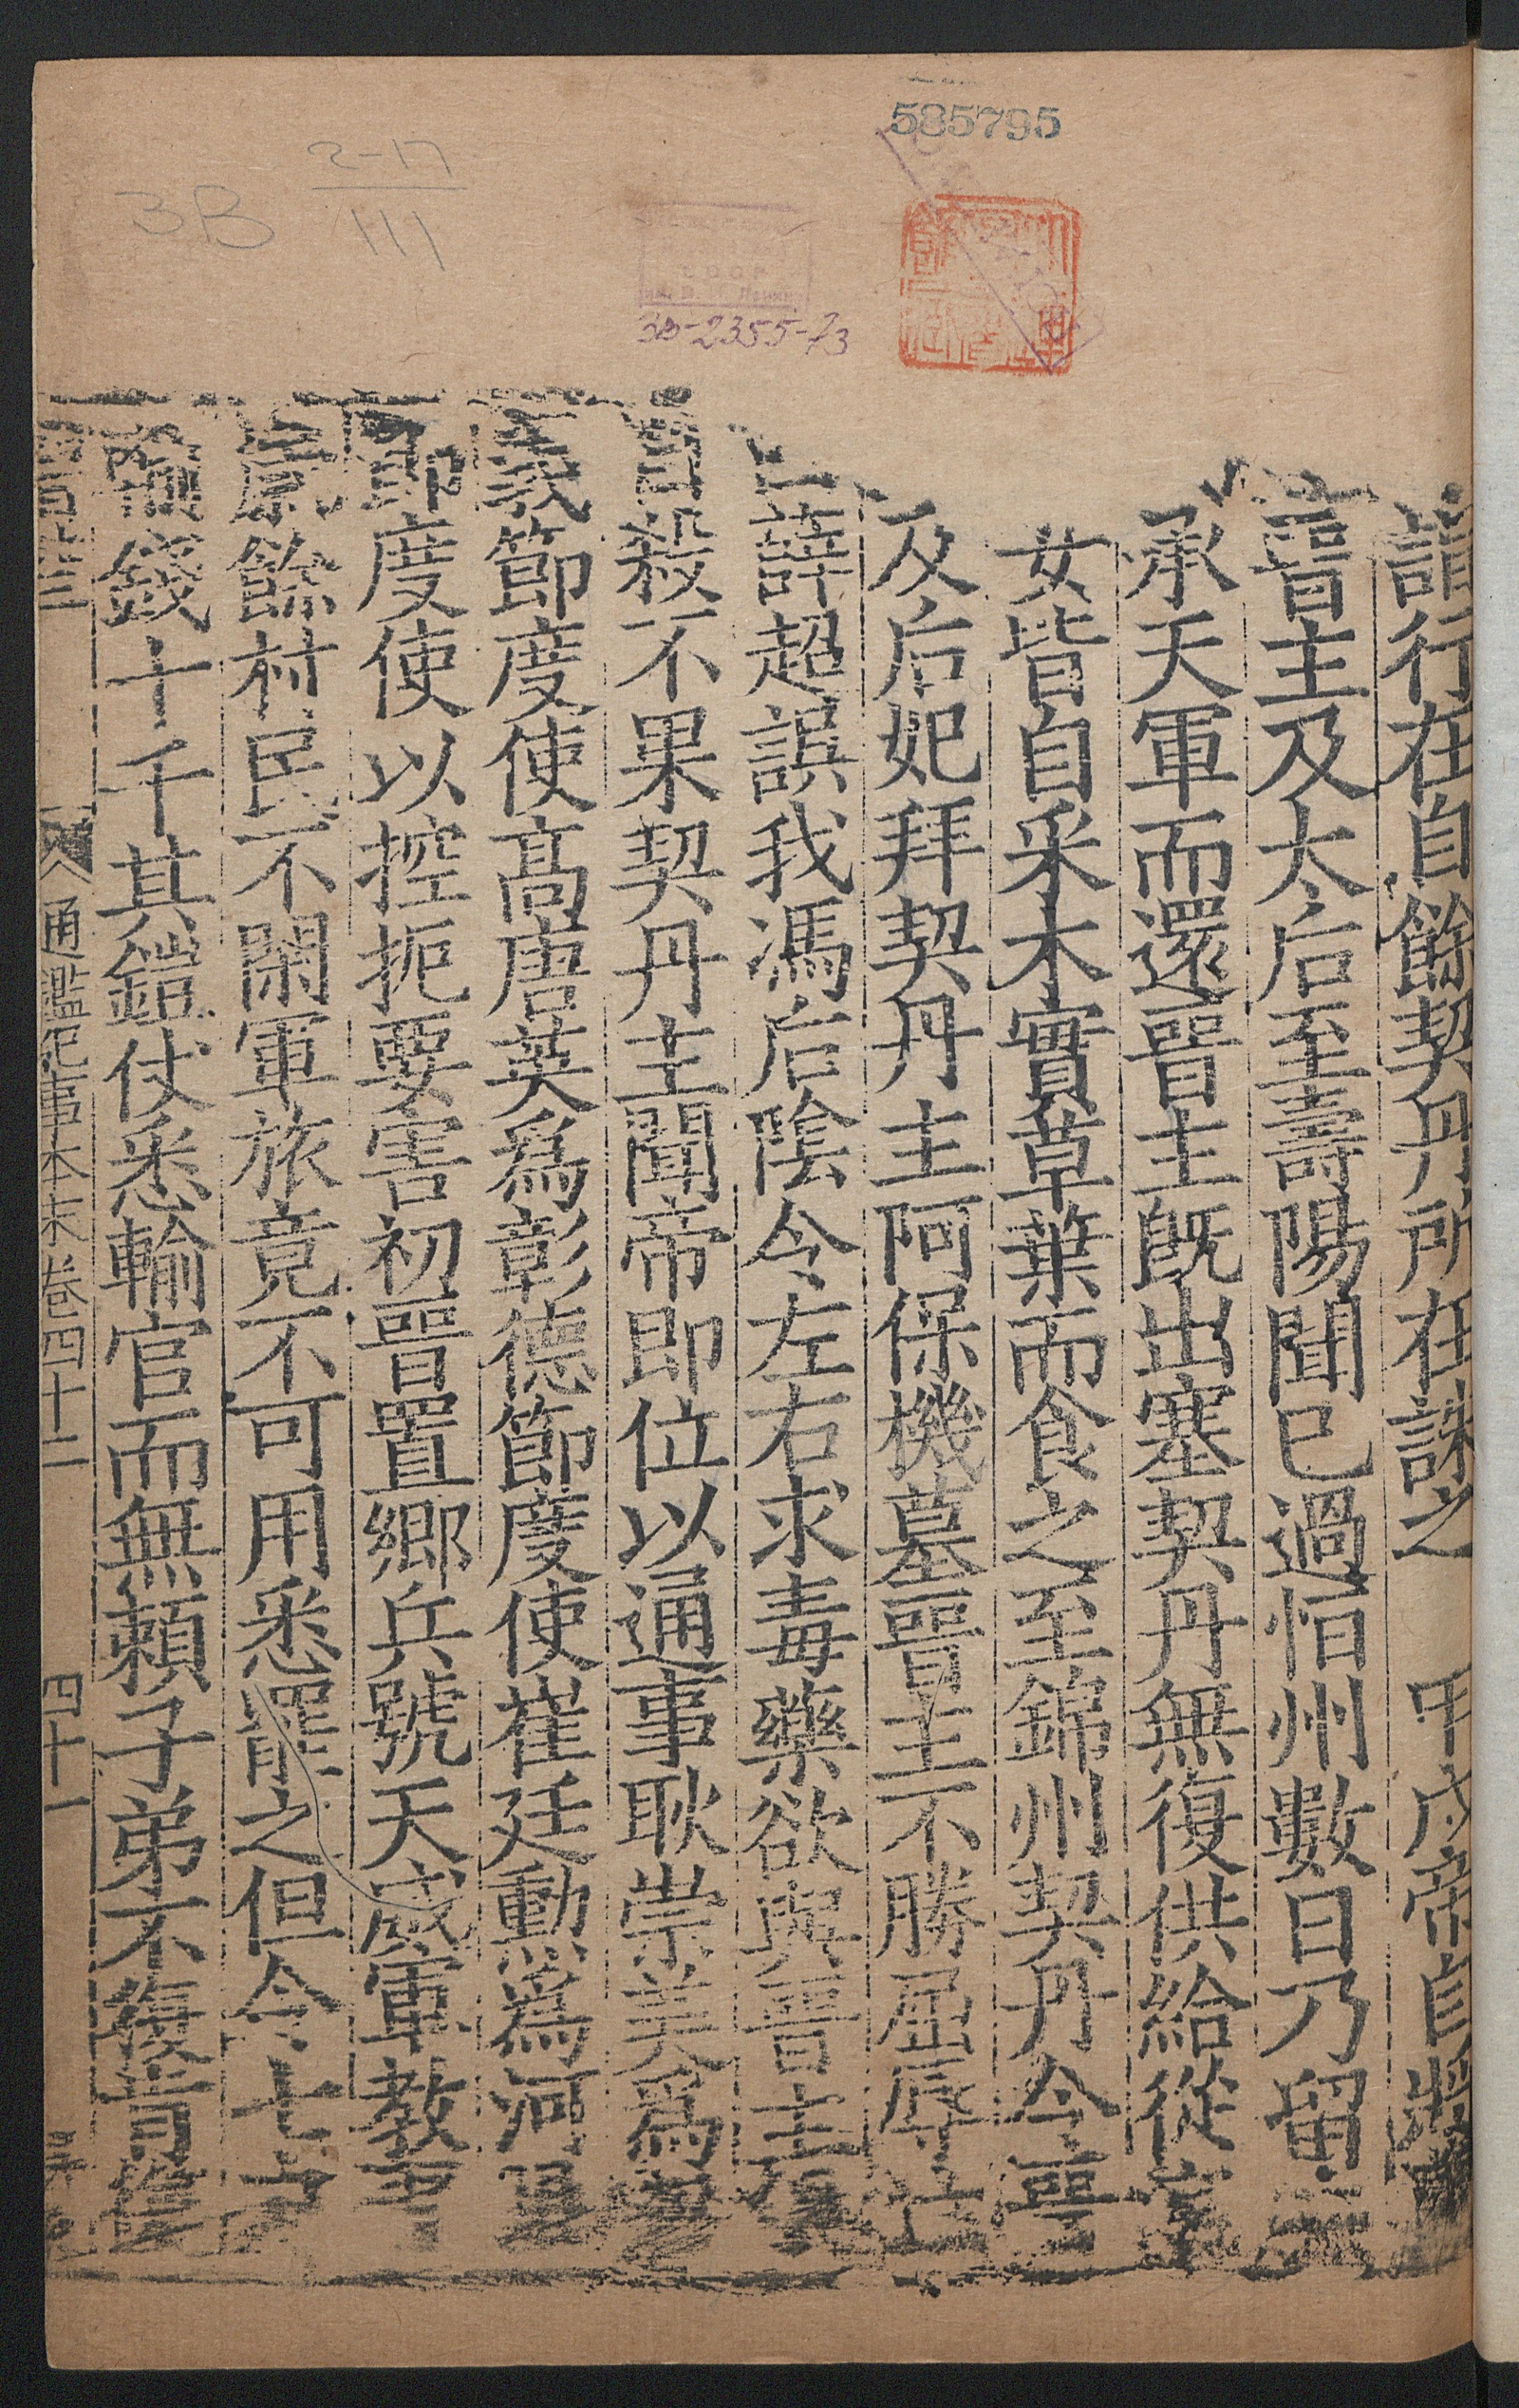 585795
2-17
3B 111
3B-2355-73
詣行在自餘契丹所在誅之 甲戌帝自將
晉主及太后至壽陽聞已過恒州數日乃留
承天軍而還晉主既出塞契丹無復供給從官
女皆自采木實草葉而食之至錦州契丹令晉
及后妃拜契丹主阿保機墓晉主不勝屈辱泣
曰薛超誤我馮后陰令左右求毒藥欲與晉主
自殺不果契丹主聞帝即位以通事耿崇美爲
義節度使髙唐英爲彰德節度使崔廷勳爲河
節度使以控扼要害初晉置鄉兵號天威軍教
原餘村民不閑軍旅竟不可用悉罷之但令七
輸錢十千其鎧仗悉輸官而無頼子弟不復肯
通鑑紀事本末卷四十二 四十一